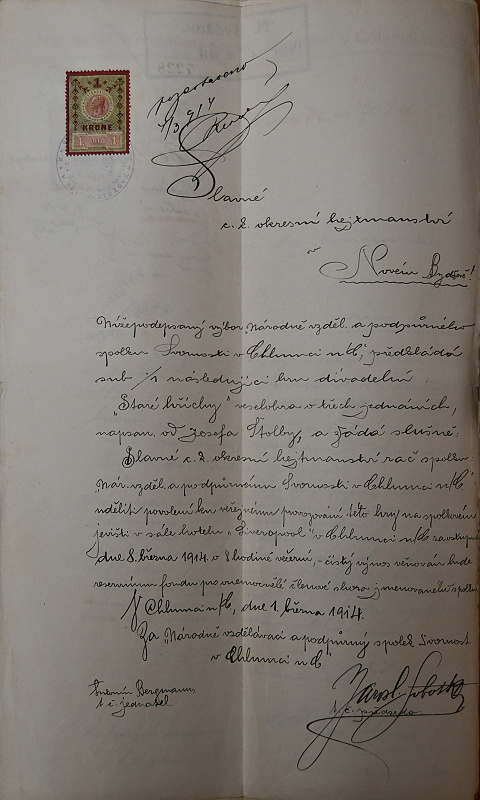 1
KRONE
1 1
7228
Slavné
c. k. okresní hejtmanství
v
Novém Bydžově!
Nížepodepsaný výbor „Národně vzděl. a podpůrného
spolku Svornosti v Chlumci n/C“, předkládá
sub ·/· následující hru divadelní:
„Staré hříchy“ veselohra o třech jednáních,
napsan. od Josefa Štolby, a žádá slušně:
Slavné c. k. okresní hejtmanství rač spolku:
„Nár. vzděl. a podpůrnému Svornosti v Chlumci n/C“
uděliti povolení ku veřejnému provozování této hry na spolkovém
jevišti v sále hotelu „Liverpool“ v Chlumci n/C
dne 8. března 1914 v 8 hodině večerní, – čistý výnos věnován bude
reservnímu fondu pro nemocné členové shora jmenovaného spolku.
V Chlumci n/C, dne 1. března 1914.
Za „Národně vzdělávací a podpůrný spolek Svornost
v Chlumci n C“
Antonín Bergmann,
t. č. jednatel
Jarosl. Sobotka
t. č. předseda.